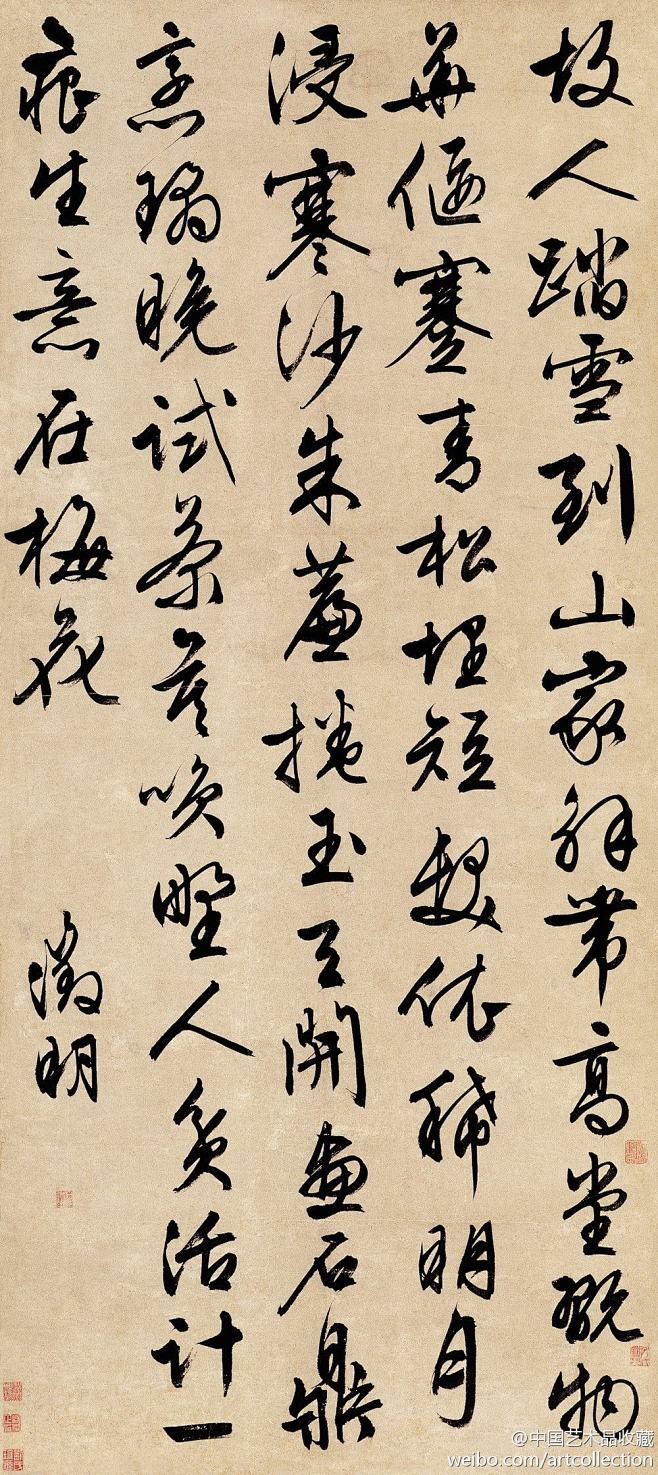 故人踏雪到山家解帶高堂翫物
華偃蹇青松埋短髮依稀明月
浸寒沙朱簾捲玉天開畫石鼎
烹瑤晚試茶莫咲野人貧活計一
痕生意在梅花
徵明
@中国艺术品收藏
weibo.com/artcollection